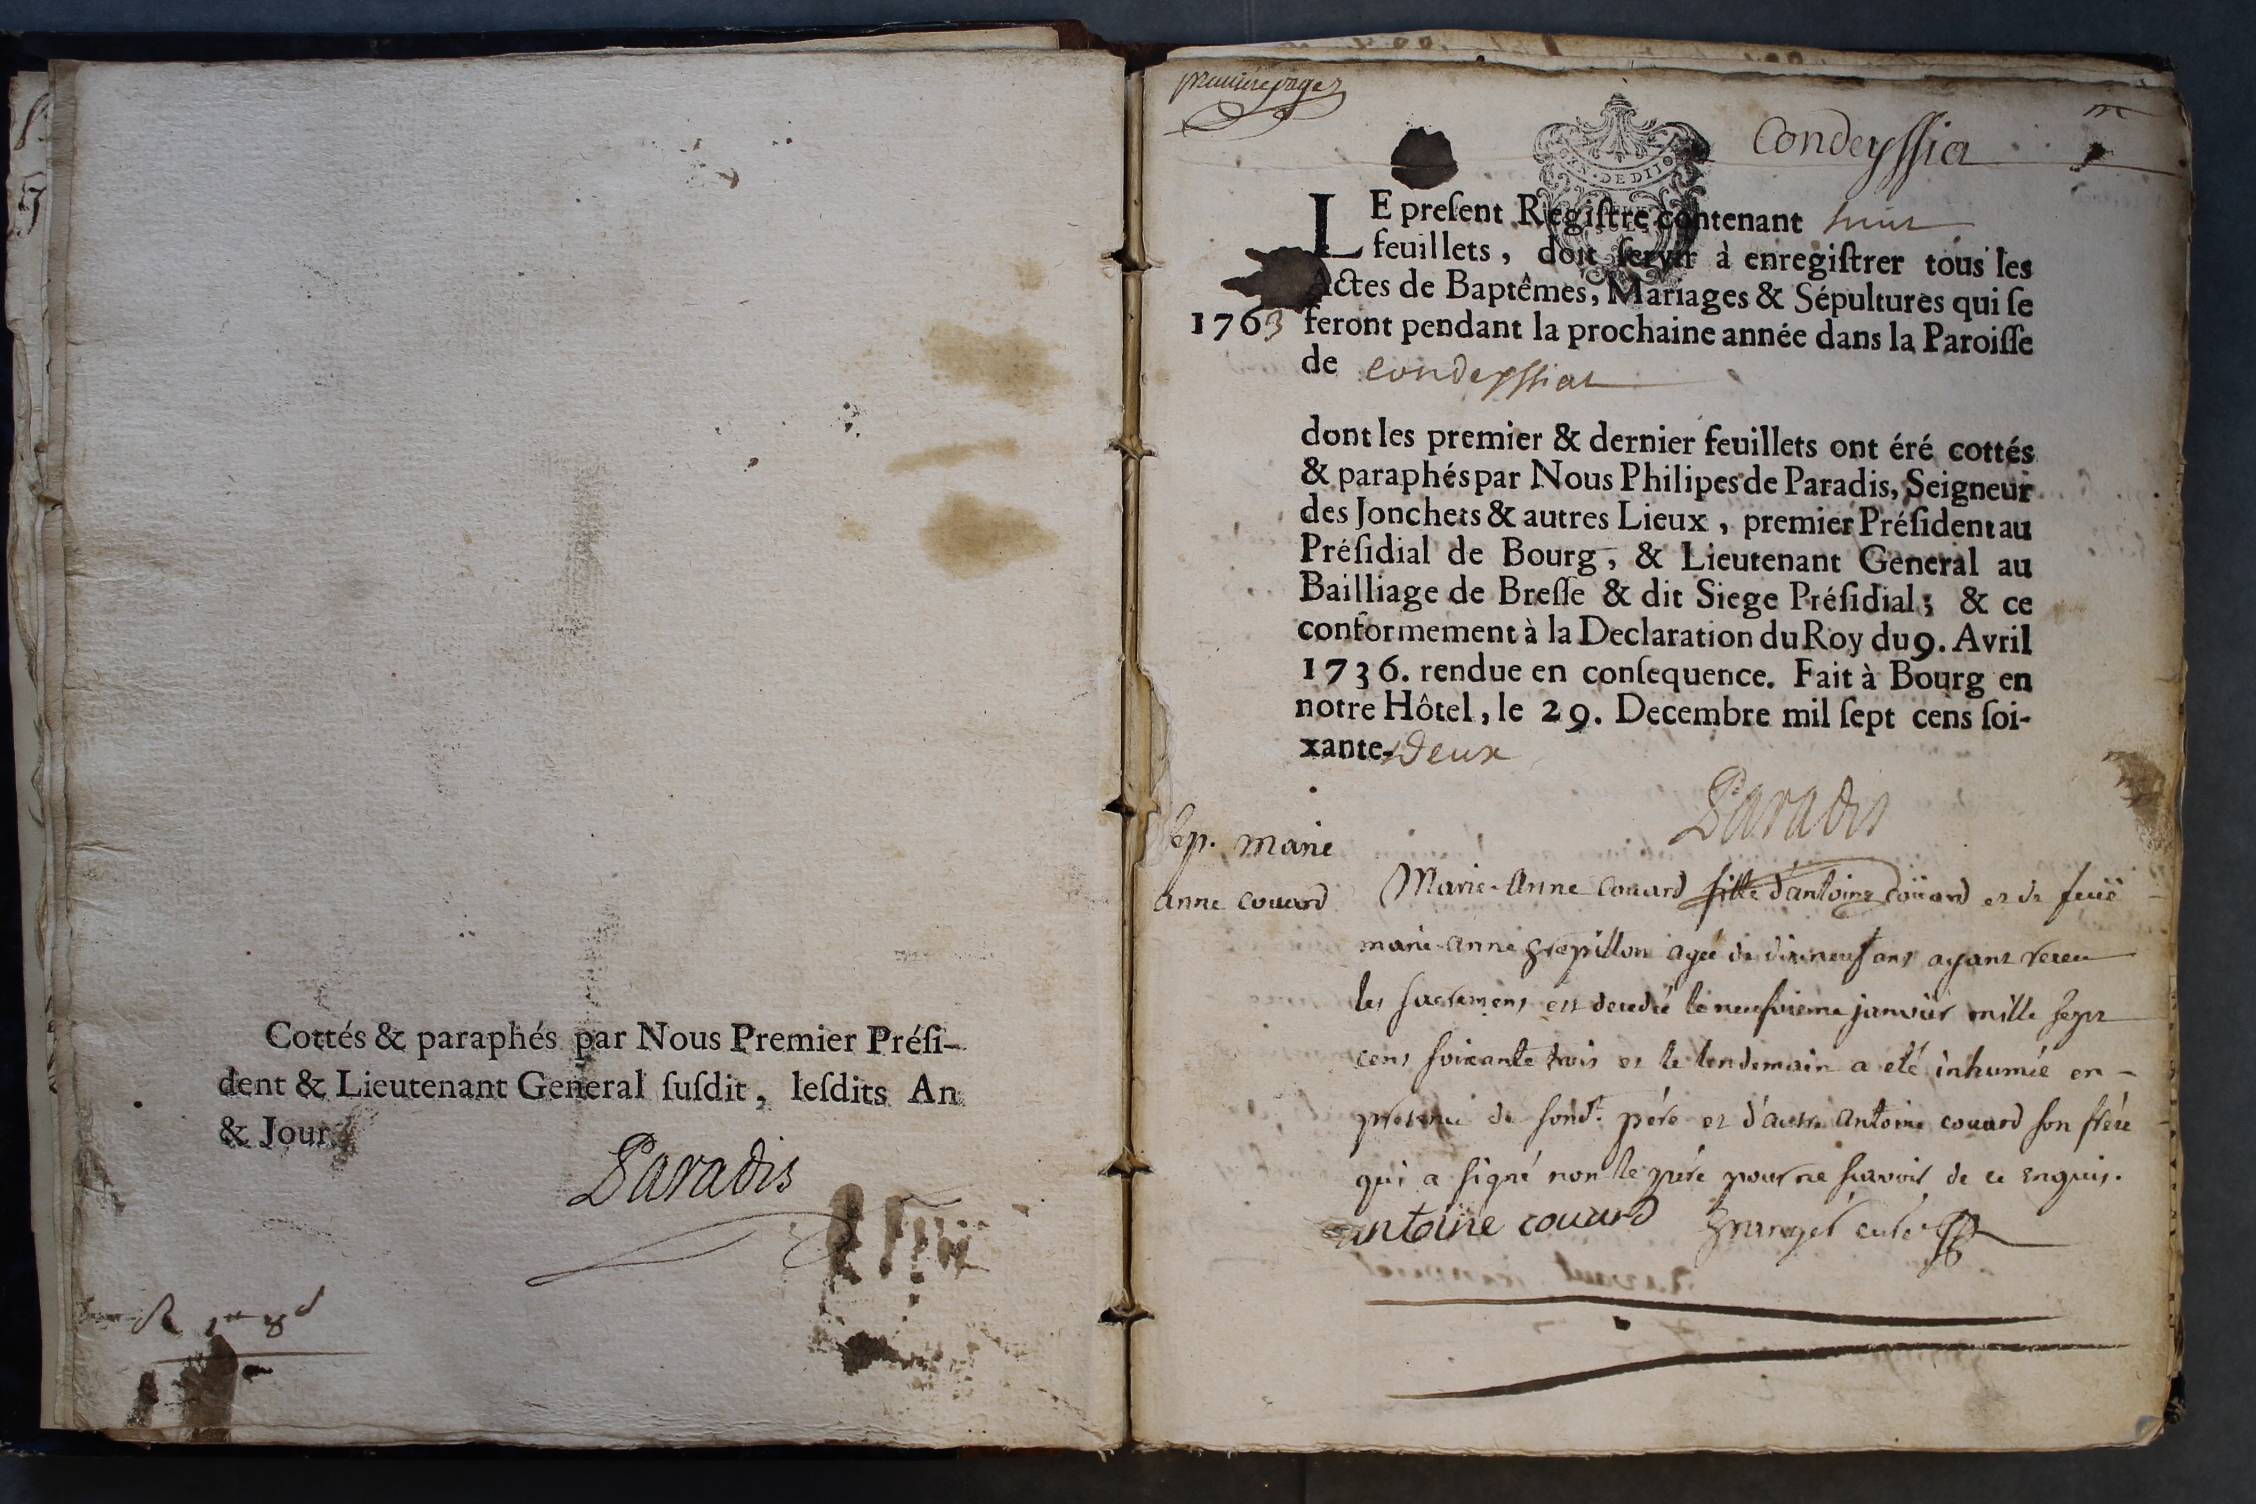 Cottés & paraphés par Nous Premier Préſi-
dent & Lieutenant General ſuſdit, leſdits An
& Jour
Paradis
premiére page
Condeyssia
AN · DEDIT
LE preſent Regiſtre contenant huit
feuillets, doit ſervir à enregiſtrer tous les
Actes de Baptêmes, Mariages & Sépultures qui ſe
1763 feront pendant la prochaine année dans la Paroiſſe
de Condeyssiat
dont les premier & dernier feuillets ont éré cottés
& paraphés par Nous Philipes de Paradis, Seigneur
des Jonchets & autres Lieux, premier Préſident au
Préſidial de Bourg, & Lieutenant General au
Bailliage de Breſſe & dit Siege Préſidial; & ce
conformement à la Declaration du Roy du 9. Avril
1736. rendue en conſequence. Fait à Bourg en
notre Hôtel, le 29. Decembre mil ſept cens ſoi-
xante-deux
Paradis
Sep. marie
anne couard
Marie-Anne Couard fille d'antoine Coüard et de feuë
marie-anne grepillon agée de dixneuf ans ayant receu
les sacremens est decedée le neufvieme janvier mille sept
cens soixante trois et le lendemain a eté inhumée en-
presence de sond.t pére et d'autre antoine couard son frére
qui a signé non le pére pour ne savoir de ce enquis.
antoine couard curé